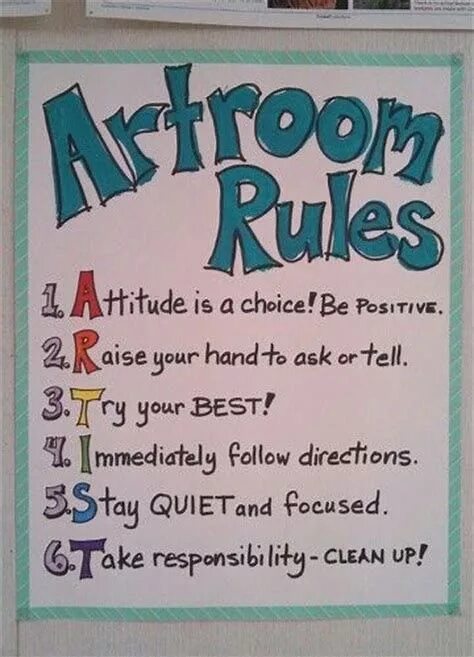 Artroom
Rules
1. Attitude is a choice! Be POSITIVE.
2. Raise your hand to ask or tell.
3. Try your BEST!
4. Immediately follow directions.
5. Stay QUIET and focused.
6. Take responsibility - CLEAN UP!